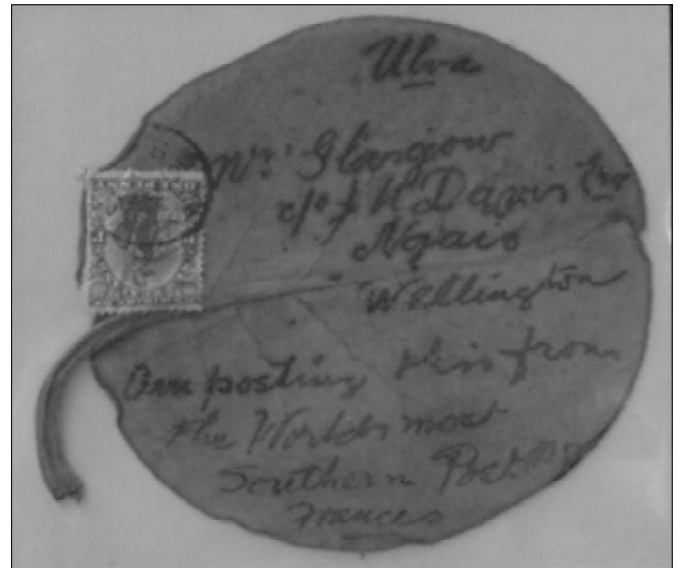 Ulva
Mrs Glasgow
c/o J H Davis Esq
Ngaio
Wellington
Am posting this from
the Worlds most
Southern Post
Frances